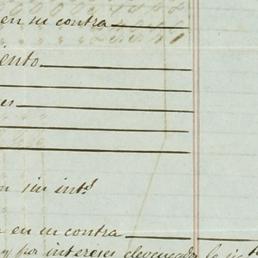 en su contra
iento
es
n sin int.s
a en su contra
y por intereses devengados